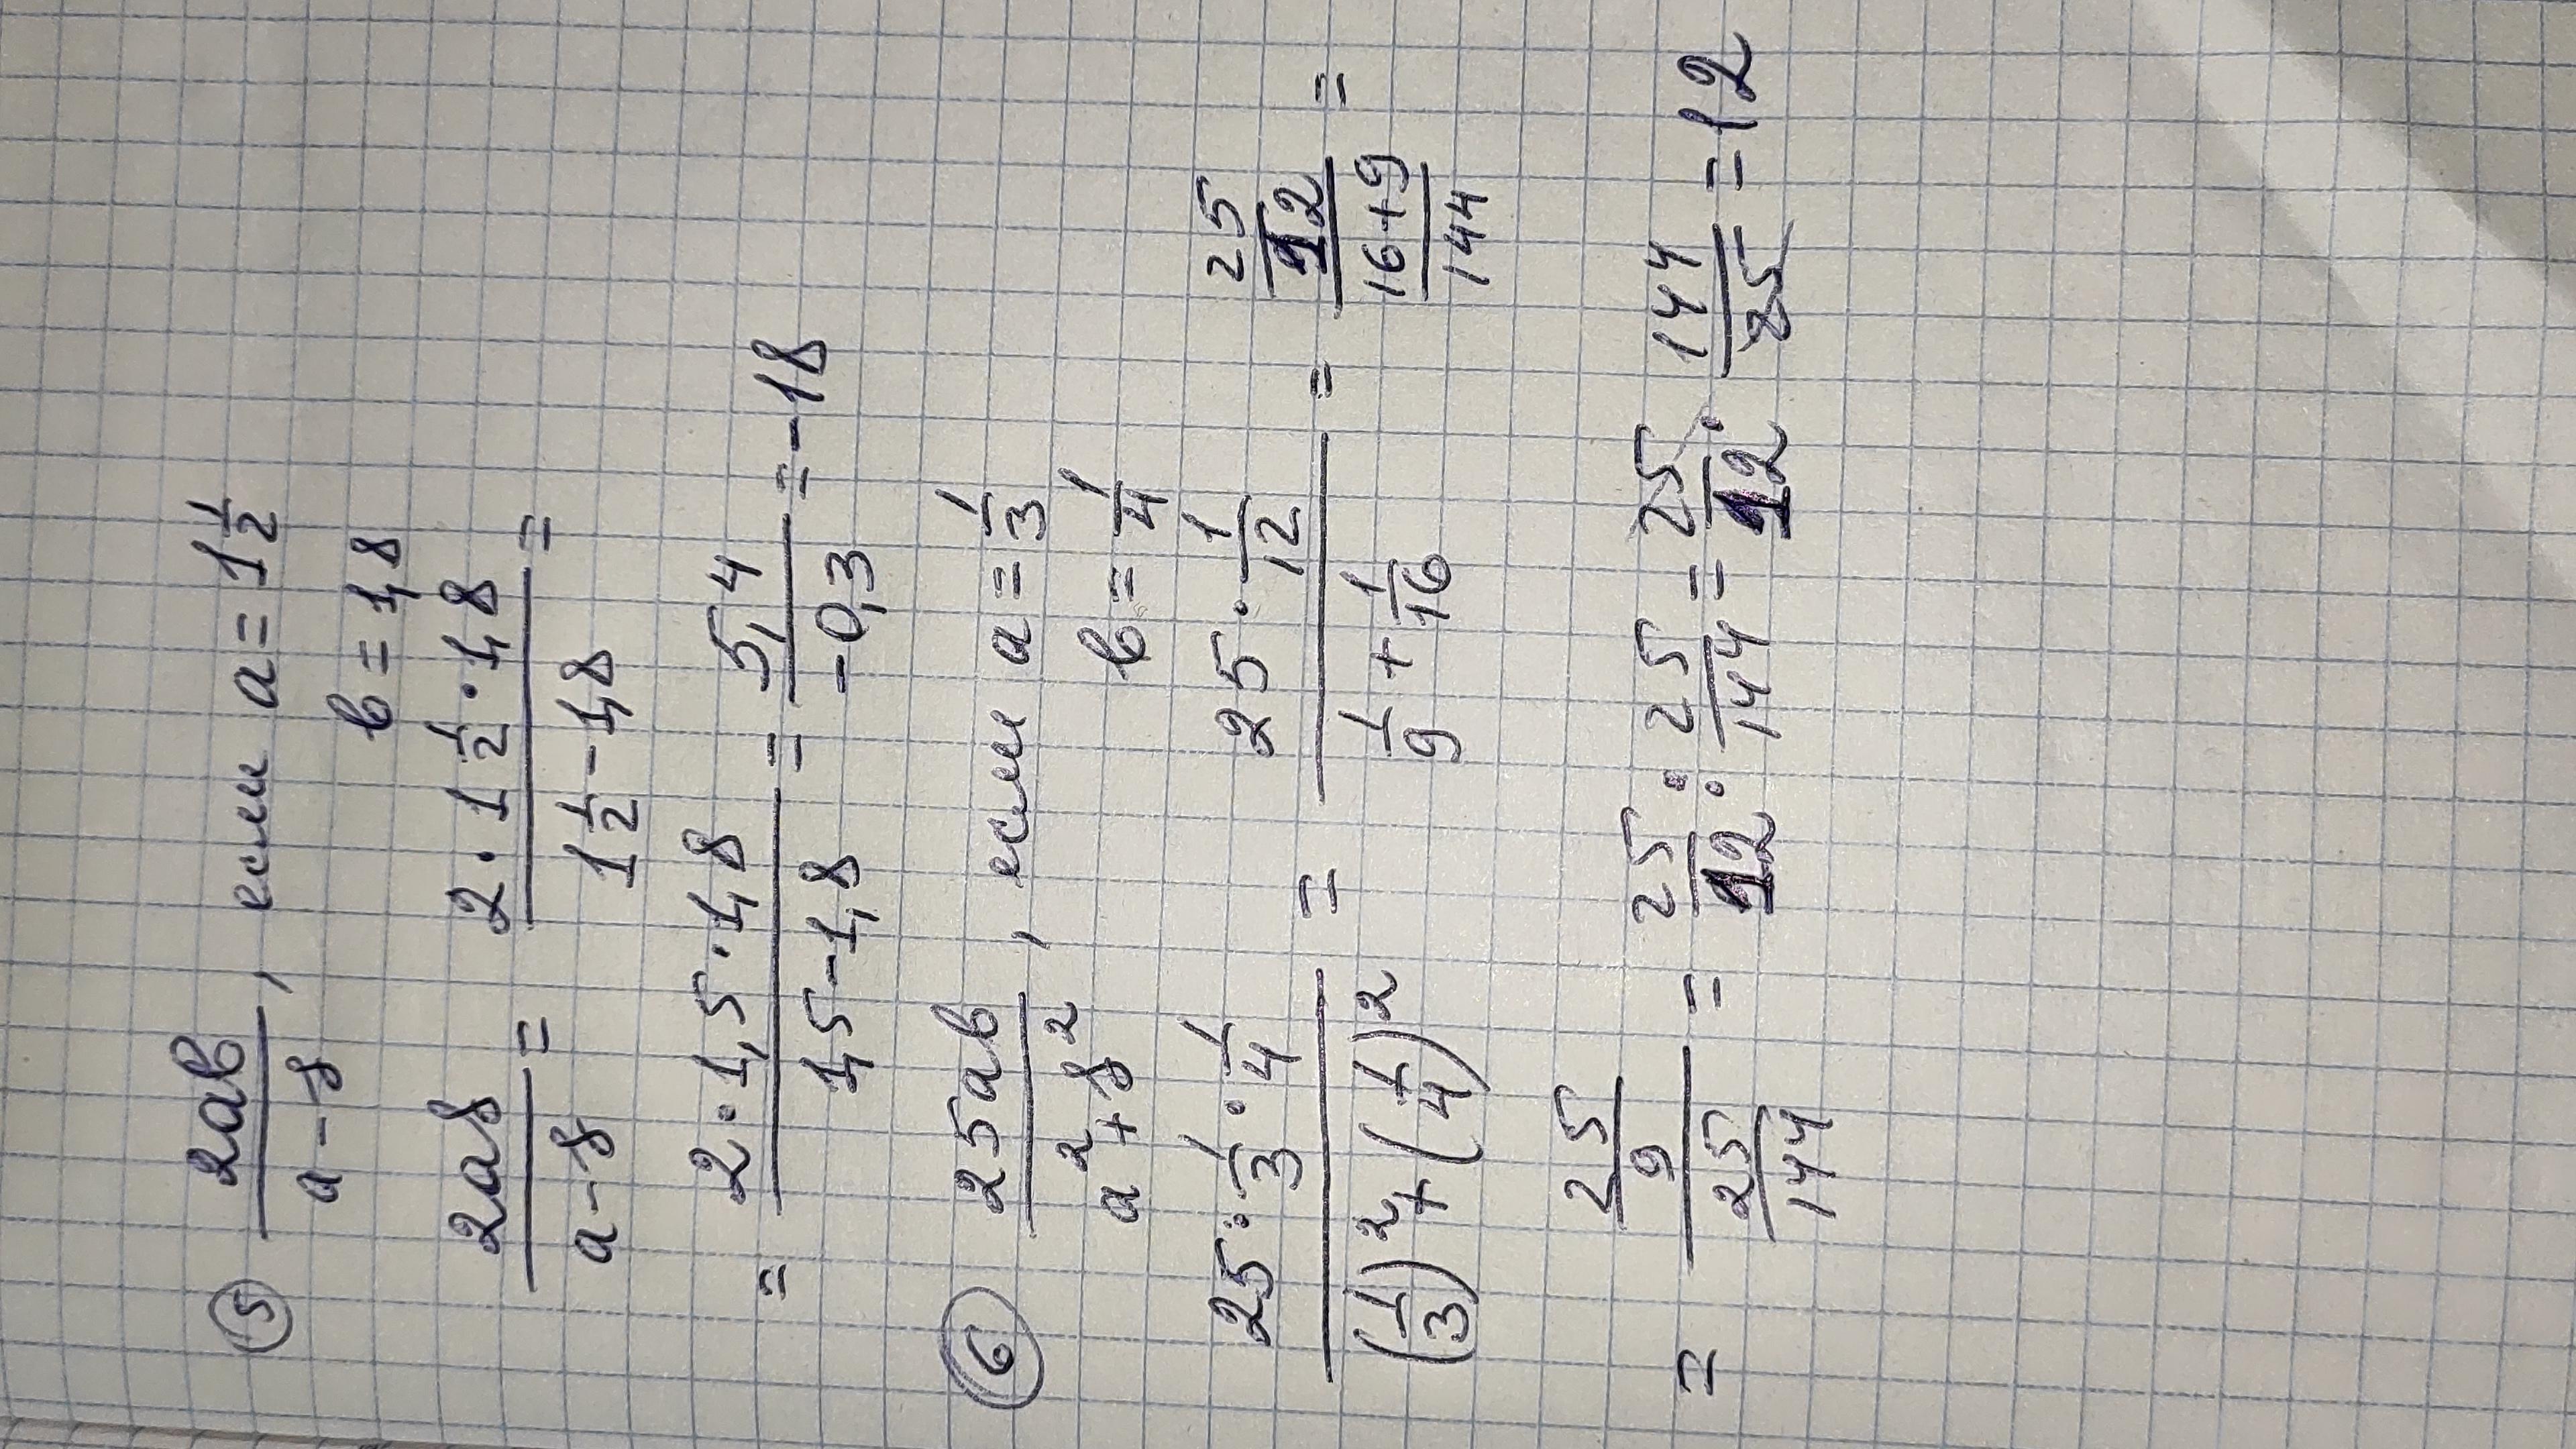 ⑤ 2ав/(а-в), если а=1 1/2
в=1,8
2ав/(а-в) = (2·1 1/2·1,8)/(1 1/2-1,8) =
= (2·1,5·1,8)/(1,5-1,8) = 5,4/(-0,3) = -18
⑥ 25ав/(а²+в²), если а=1/3
в=1/4
(25·1/3·1/4)/((1/3)²+(1/4)²) = (25·1/12)/(1/9+1/16) = (25/12)/((16+9)/144) =
= (25/9)/(25/144) = 25/12 : 25/144 = 25/12 · 144/25 = 12